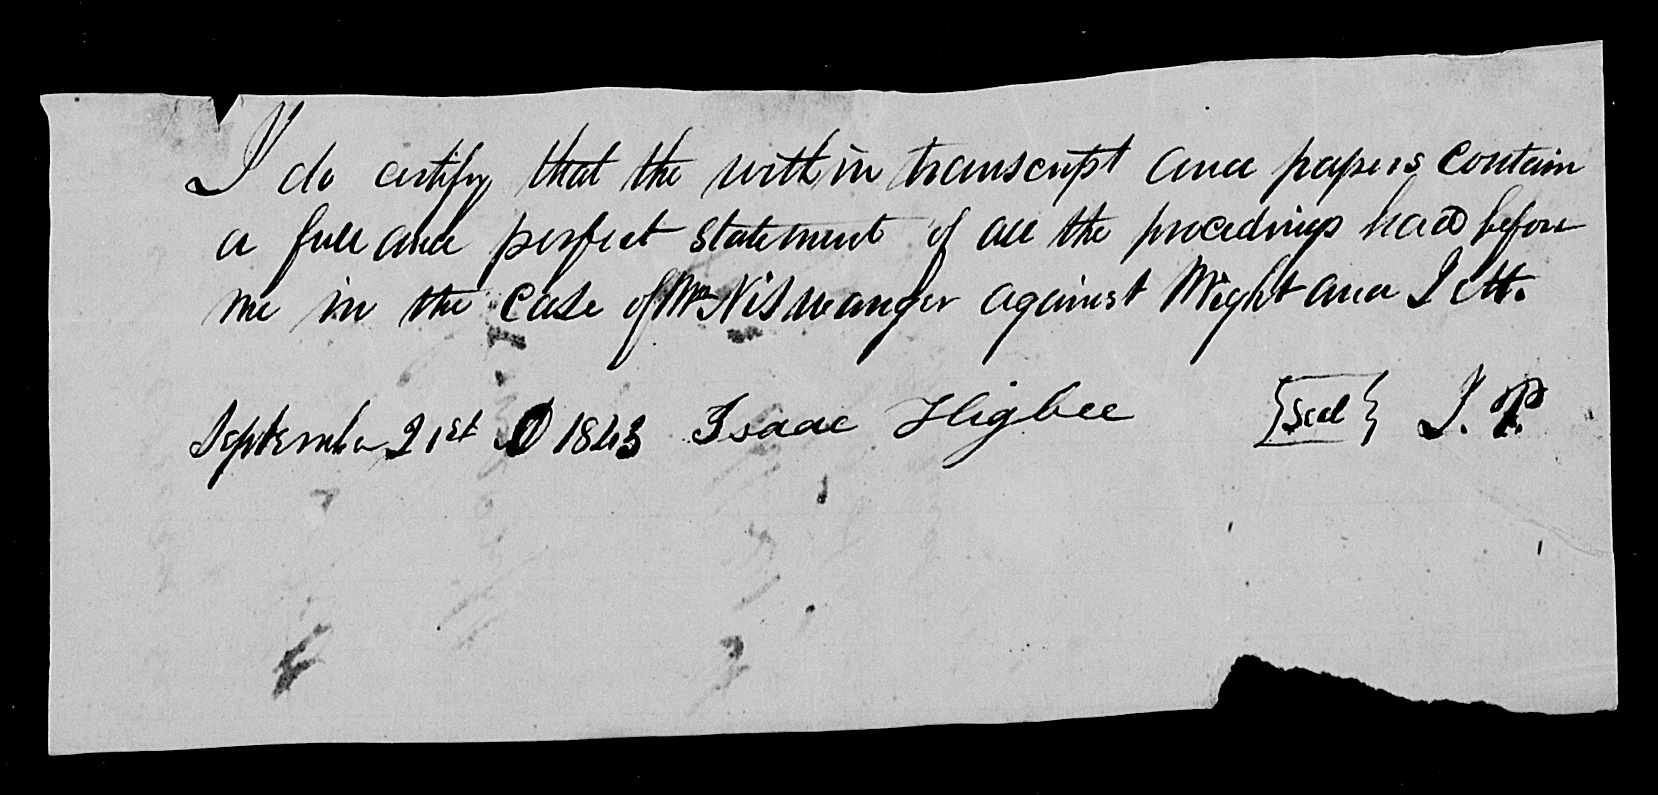 I do certify that the within transcript and papers contain
a full and perfect statement of all the procedings had before
me in the case of Wm Niswanger against Wight and Jett.
September 21st D 1843 Isaac Higbee {Seal} J. P.